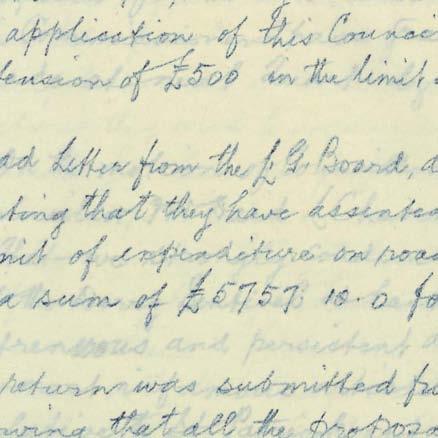 application of this Counci
tension of £500 in the limit
ad Letter from the L. G. Board, d
ting that they have assented
mit of expenditure on road
a sum of £5757. 10. 0 fo
return was submitted fr
owing that all the proposa